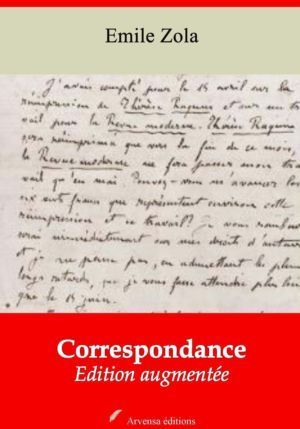 Emile Zola
J'avais compté pour le 15 avril sur la
réimpression de Thérèse Raquin et sur un tra-
vail pour la Revue moderne. Thérèse Raquin
sera réimprimée que vers la fin de ce mois,
la Revue moderne ne fera passer mon tra-
vail qu'en mai. Pouvez-vous m'avancer les
six cents francs que représentent environ cette
réimpression et ce travail? Je vous rembour-
serai immédiatement sur mes droits d'auteur
et je ne pense pas, en admettant les plus
longs retards, que je vous fasse attendre plus loin
que le 15 juin.
Correspondance
Edition augmentée
Arvensa éditions